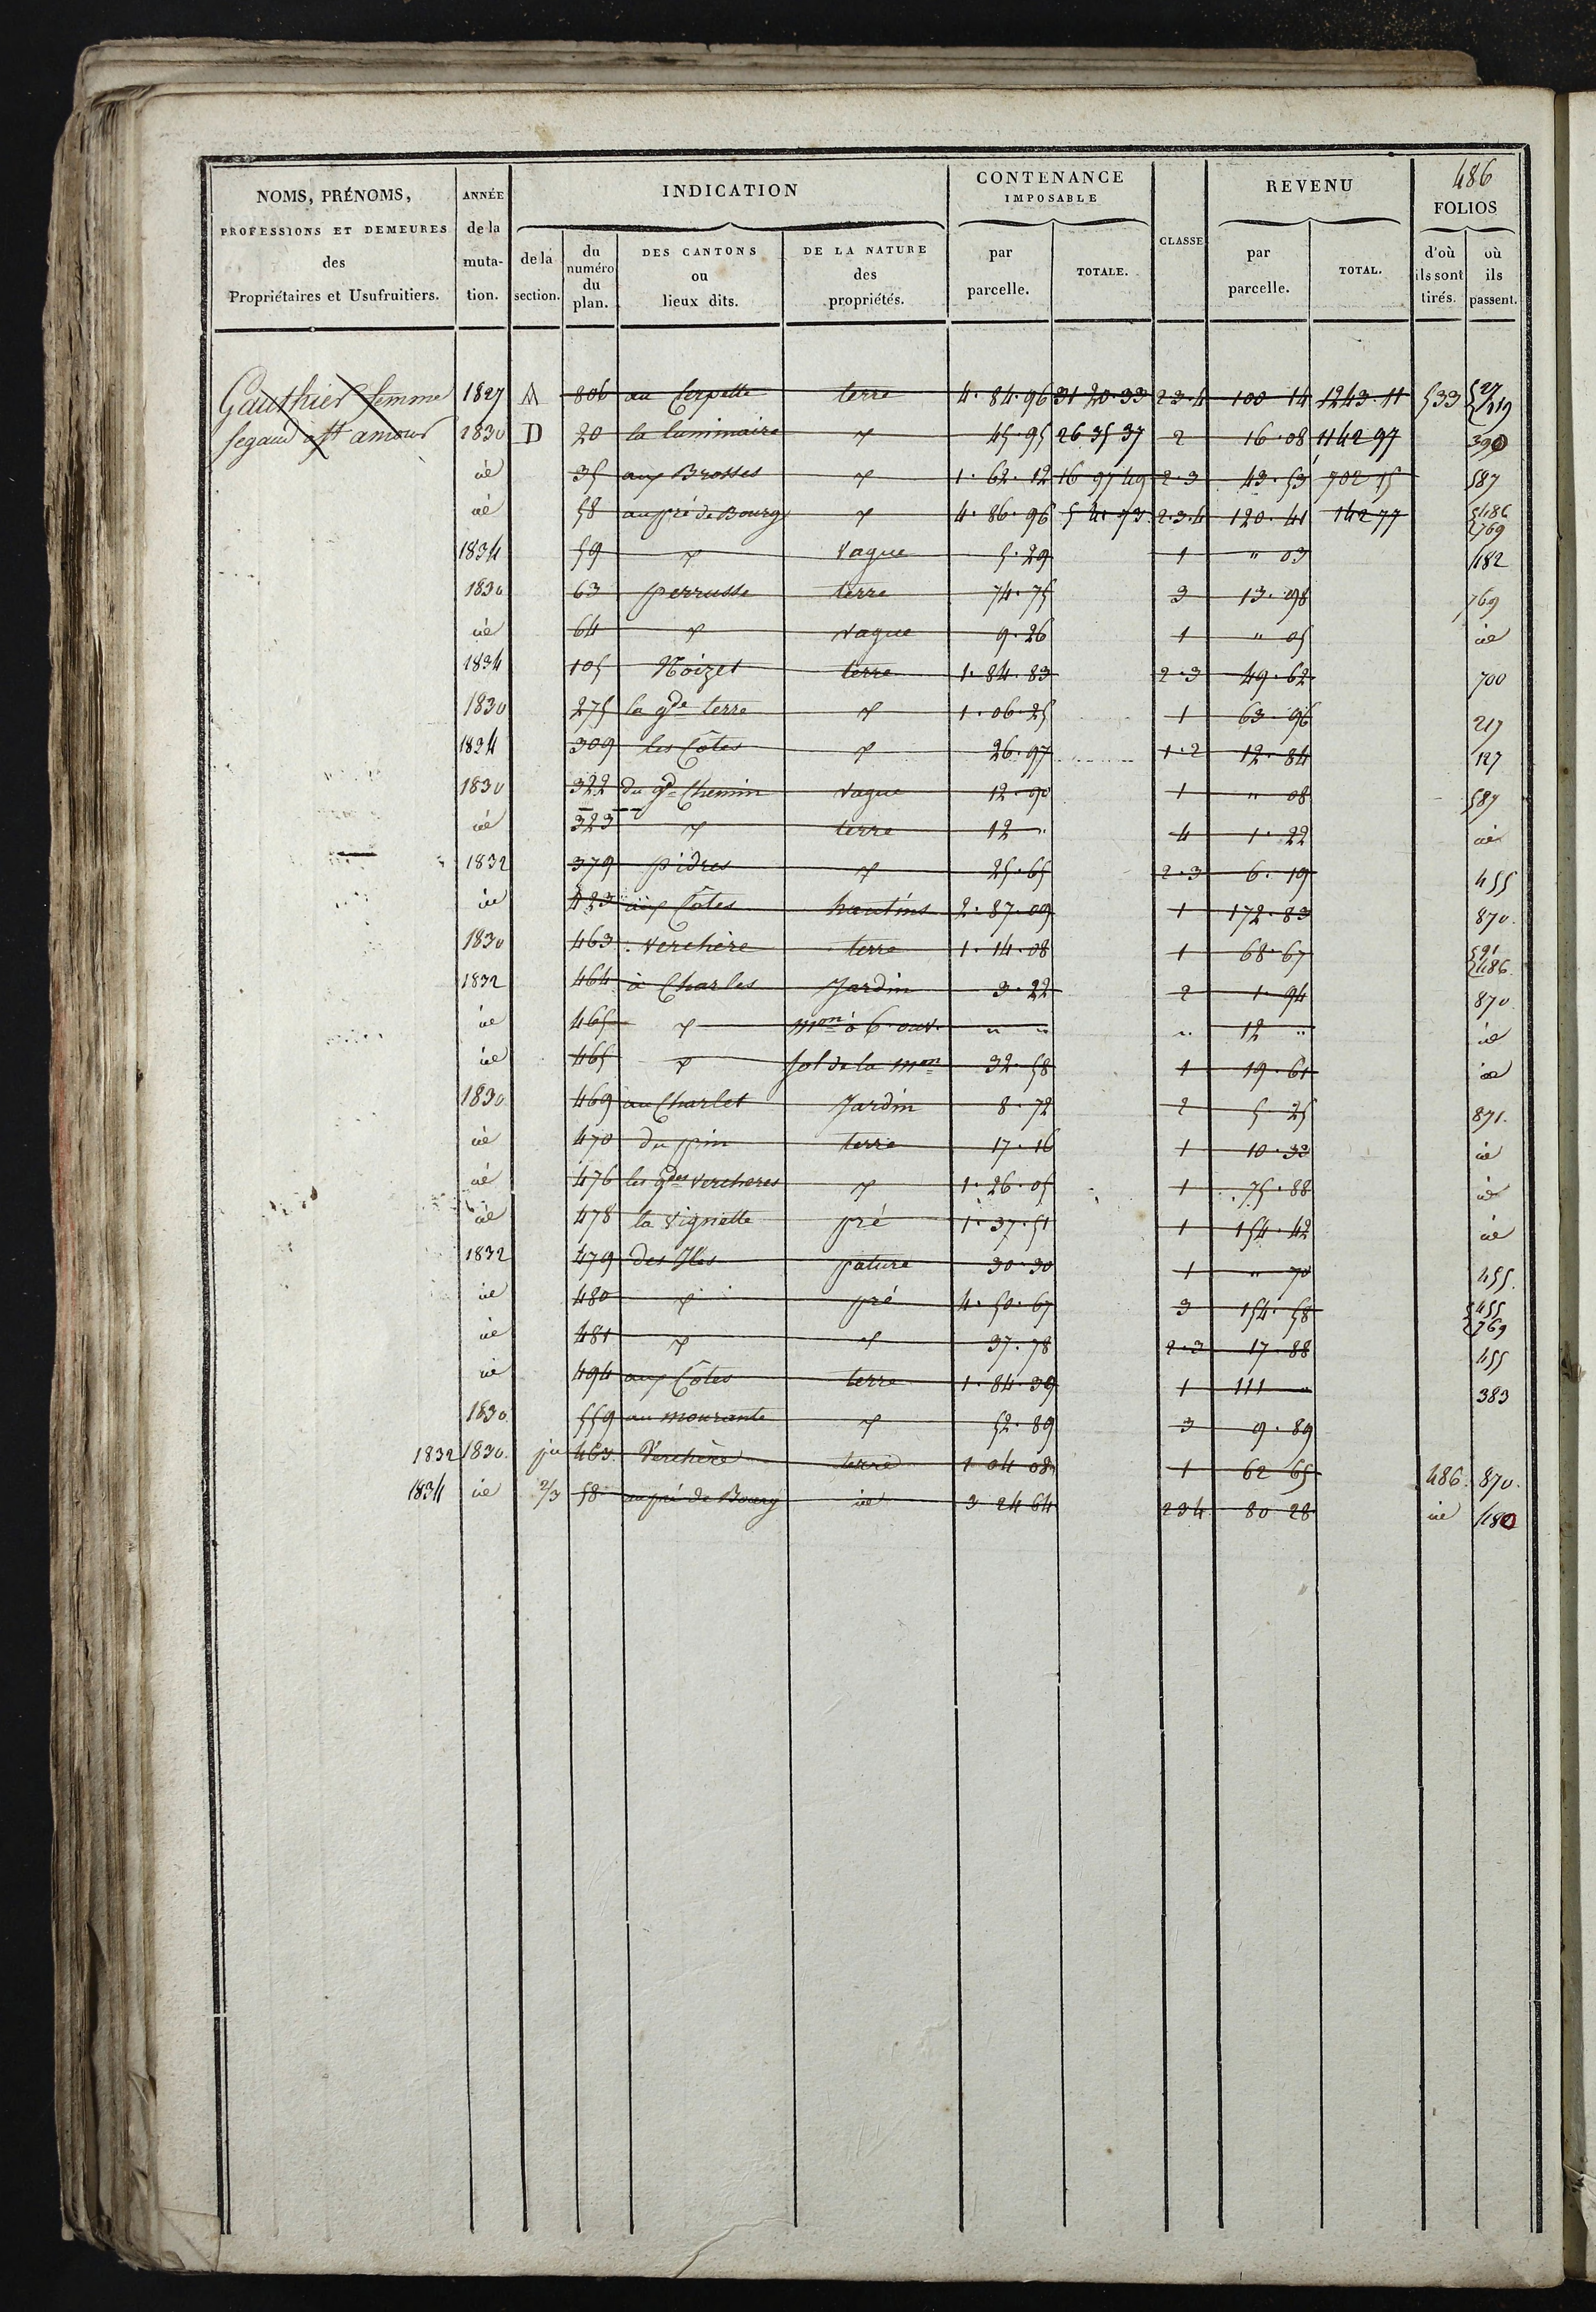 486
NOMS, PRÉNOMS, PROFESSIONS ET DEMEURES des Propriétaires et Usufruitiers.
ANNÉE de la muta- tion.
INDICATION
de la section.
du numéro du plan.
DES CANTONS ou lieux dits.
DE LA NATURE des propriétés.
CONTENANCE IMPOSABLE
par parcelle.
TOTALE.
CLASSE
REVENU
par parcelle.
TOTAL.
FOLIOS
d'où ils sont tirés.
où ils passent.
Gauthier femme 1827 A 806 au Cerpette terre 4.84.96 31 20.33 2.3.4 100 14 1243.11 533
segaud à St amour 1830 D 20 la luminaire " 45.95 26 35 37 2 16.08 1142 97 390
id 35 aux Brosses " 1.62.12 16 97 49 2.3 43.53 702 15 587
id 58 au pré de Bourg " 4.86.96 5 41.73 2.3.4 120.41 142 77 486 769
1834 59 " vague 5.29 1 " 03 1182
1830 63 perrusse terre 74.75 3 13.98 769
id 64 " vague 9.26 1 " 05 id
1834 105 Noizet terre 1.84.83 2.3 49.62 700
1830 275 la gde terre " 1.06.25 1 63.96 217
1834 309 les Côtes " 26.97 1.2 12.84 127
1830 322 du gd Chemin vague 12.90 1 " 08 587
id 323 " terre 12 " 4 1.22 id
1832 379 pidres " 25.65 2.3 6.19 455
id 433 aux Côtes hautins 2.87.09 1 172.83 870.
1830 463 verchère terre 1.14.08 1 68.67 591 486.
1832 464 à Charles Jardin 3.22 2 1.94 870
id 465 " mon à 6 ouv. " " " 12 " id
id 465 " sol de la mon 32.58 1 19.61 id
1830 469 au Charlet Jardin 8.72 2 5.25 871.
id 470 du pin terre 17.16 1 10.32 id
id 476 les gdes vercheres " 1.26.05 1 75.88 id
id 478 la vignette pré 1.37.51 1 154.42 id
1832 479 des Iles pature 30.30 1 " 70 455.
id 480 " pré 4.50.67 3 154.58 455 769
id 481 " " 37.78 2.3 17.88 455
id 494 aux Côtes terre 1.84.39 1 111 " 383
1830 559 au mourante " 52.89 3 9.89
1832 1830. 463 Verchère terre 1 04 08 1 62 65 486 870.
1834 id 2/3 58 au pré de Bourg id 3 24 64 234 80 28 id